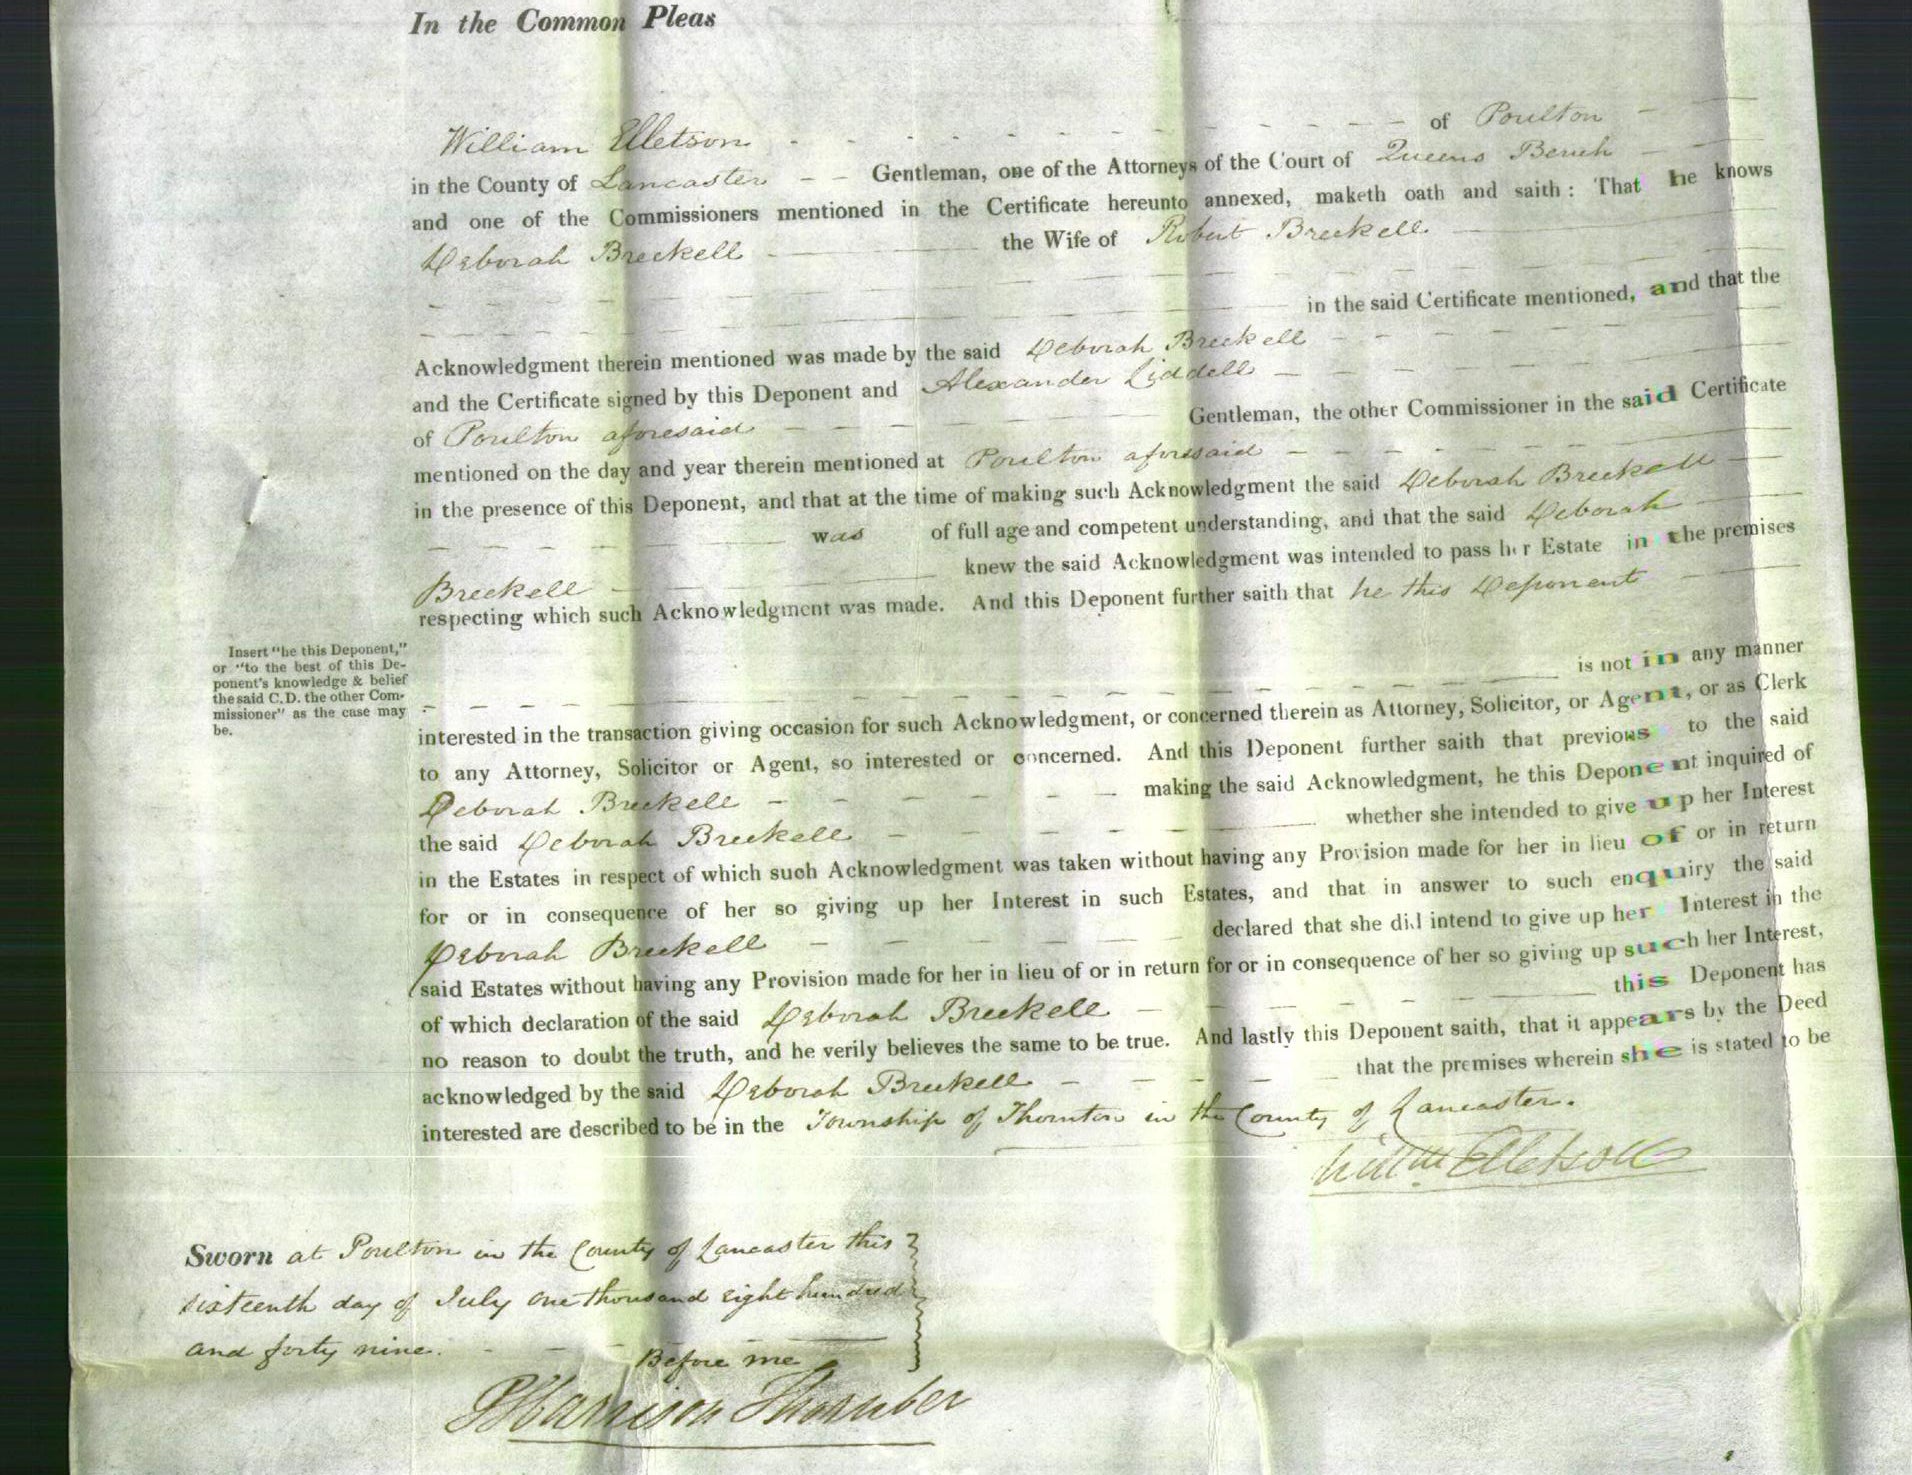 In the Common Pleas
William Elletson of Poulton
in the County of Lancaster Gentleman, one of the Attorneys of the Court of Queens Bench
and one of the Commissioners mentioned in the Certificate hereunto annexed, maketh oath and saith: That he knows
Deborah Breckell the Wife of Robert Breckell
in the said Certificate mentioned, and that the
Acknowledgment therein mentioned was made by the said Deborah Breckell
and the Certificate signed by this Deponent and Alexander Liddell
of Poulton aforesaid Gentleman, the other Commissioner in the said Certificate
mentioned on the day and year therein mentioned at Poulton aforesaid
in the presence of this Deponent, and that at the time of making such Acknowledgment the said Deborah Breckell
was of full age and competent understanding, and that the said Deborah
Breckell knew the said Acknowledgment was intended to pass her Estate in the premises
respecting which such Acknowledgment was made. And this Deponent further saith that he this Deponent
is not in any manner
interested in the transaction giving occasion for such Acknowledgment, or concerned therein as Attorney, Solicitor, or Agent, or as Clerk
to any Attorney, Solicitor or Agent, so interested or concerned. And this Deponent further saith that previous to the said
Deborah Breckell making the said Acknowledgment, he this Deponent inquired of
the said Deborah Breckell whether she intended to give up her Interest
in the Estates in respect of which such Acknowledgment was taken without having any Provision made for her in lieu of or in return
for or in consequence of her so giving up her Interest in such Estates, and that in answer to such enquiry the said
Deborah Breckell declared that she did intend to give up her Interest in the
said Estates without having any Provision made for her in lieu of or in return for or in consequence of her so giving up such her Interest,
of which declaration of the said Deborah Breckell this Deponent has
no reason to doubt the truth, and he verily believes the same to be true. And lastly this Deponent saith, that it appears by the Deed
acknowledged by the said Deborah Breckell that the premises wherein she is stated to be
interested are described to be in the Township of Thornton in the County of Lancaster.
Willm Elletson
Insert "he this Deponent,"
or "to the best of this De-
ponent's knowledge & belief
the said C.D. the other Com-
missioner" as the case may
be.
Sworn at Poulton in the County of Lancaster this
sixteenth day of July one thousand eight hundred
and forty nine.
Before me
Harrison Thornber